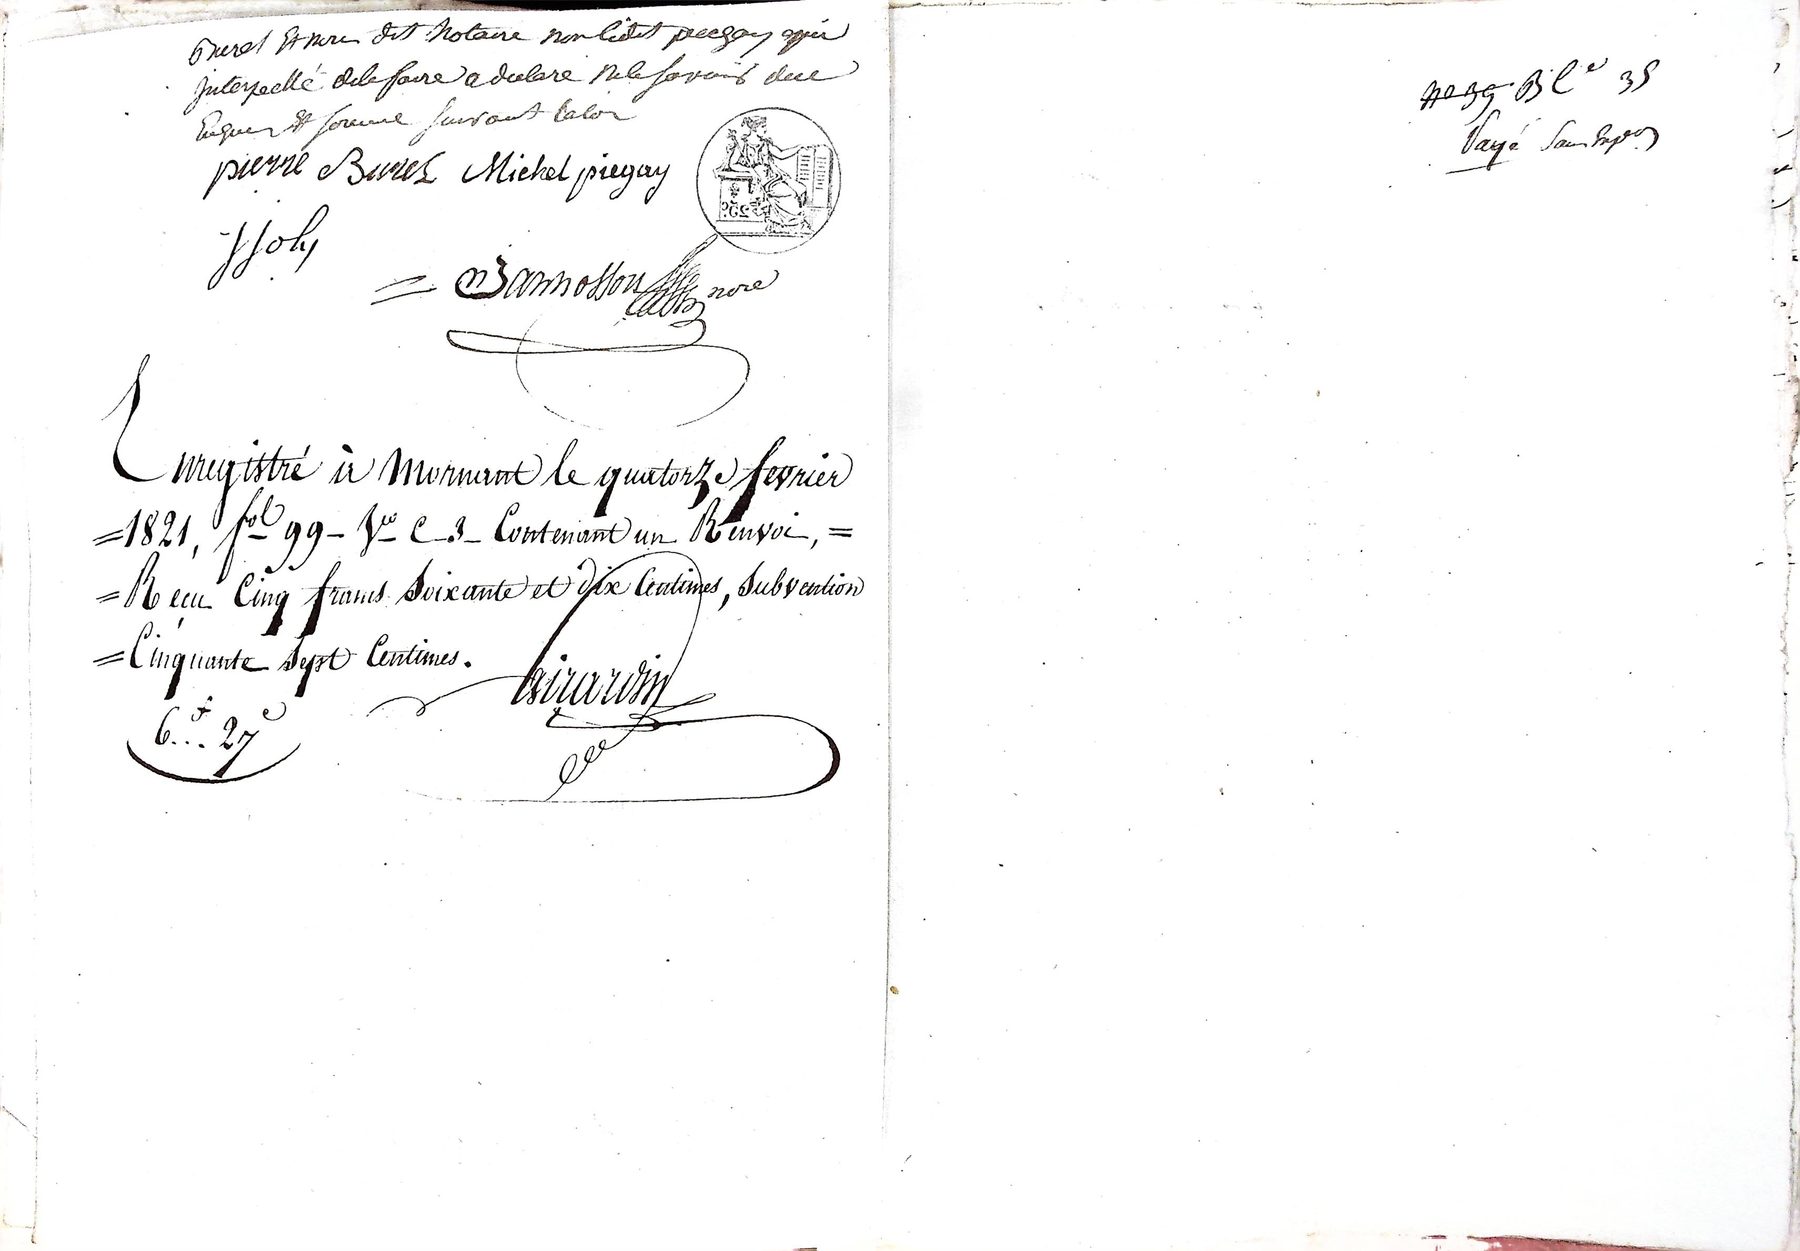 Burel Et nore dit Notaire non ledit piegay qui
Interpellé de le faire a déclaré ne le savoir de ce
Enquis Et somme suivant la loi
pierre Burel Michel piegay
JJoly
nore
Enregistré à Mornant le quatorze fevrier
=1821, fol 99 - Vo C-3- Contenant un Renvoi, =
=Reçu Cinq francs Soixante et dix Centimes, Subvention
=Cinquante Sept Centimes.
Girardin
6f... 27c
No 39 B Ce 35
Payé